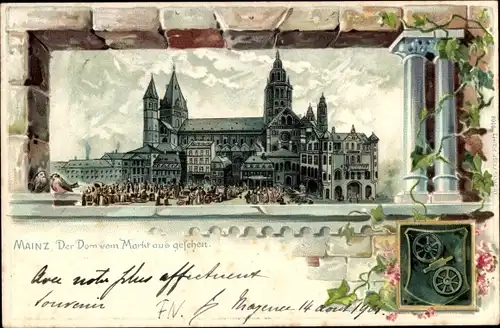 MAINZ, Der Dom vom Markt aus gesehen.
Avec notre plus affectueux
Souvenir
F.N. Mayence 14 août 1901